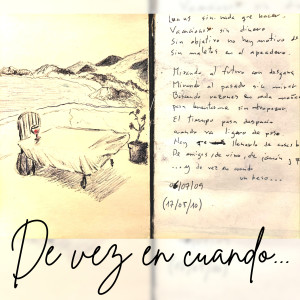 sin nada que hacer.
Vacaciones sin dinero
Sin objetivo no hay motivo
sin maletas en el apeadero.
Mirando al futuro con desgana
Mirando al pasado sin miedo
Buscando razones cada mañana
para sin tropezar.
El tiempo pasa despacio
cuando va ligero de peso
Hoy llenarlo de
De amigos, de vino, de jamón y
... y de vez en cuando
un beso...
06/07/09
(17/05/10)
De vez en cuando...